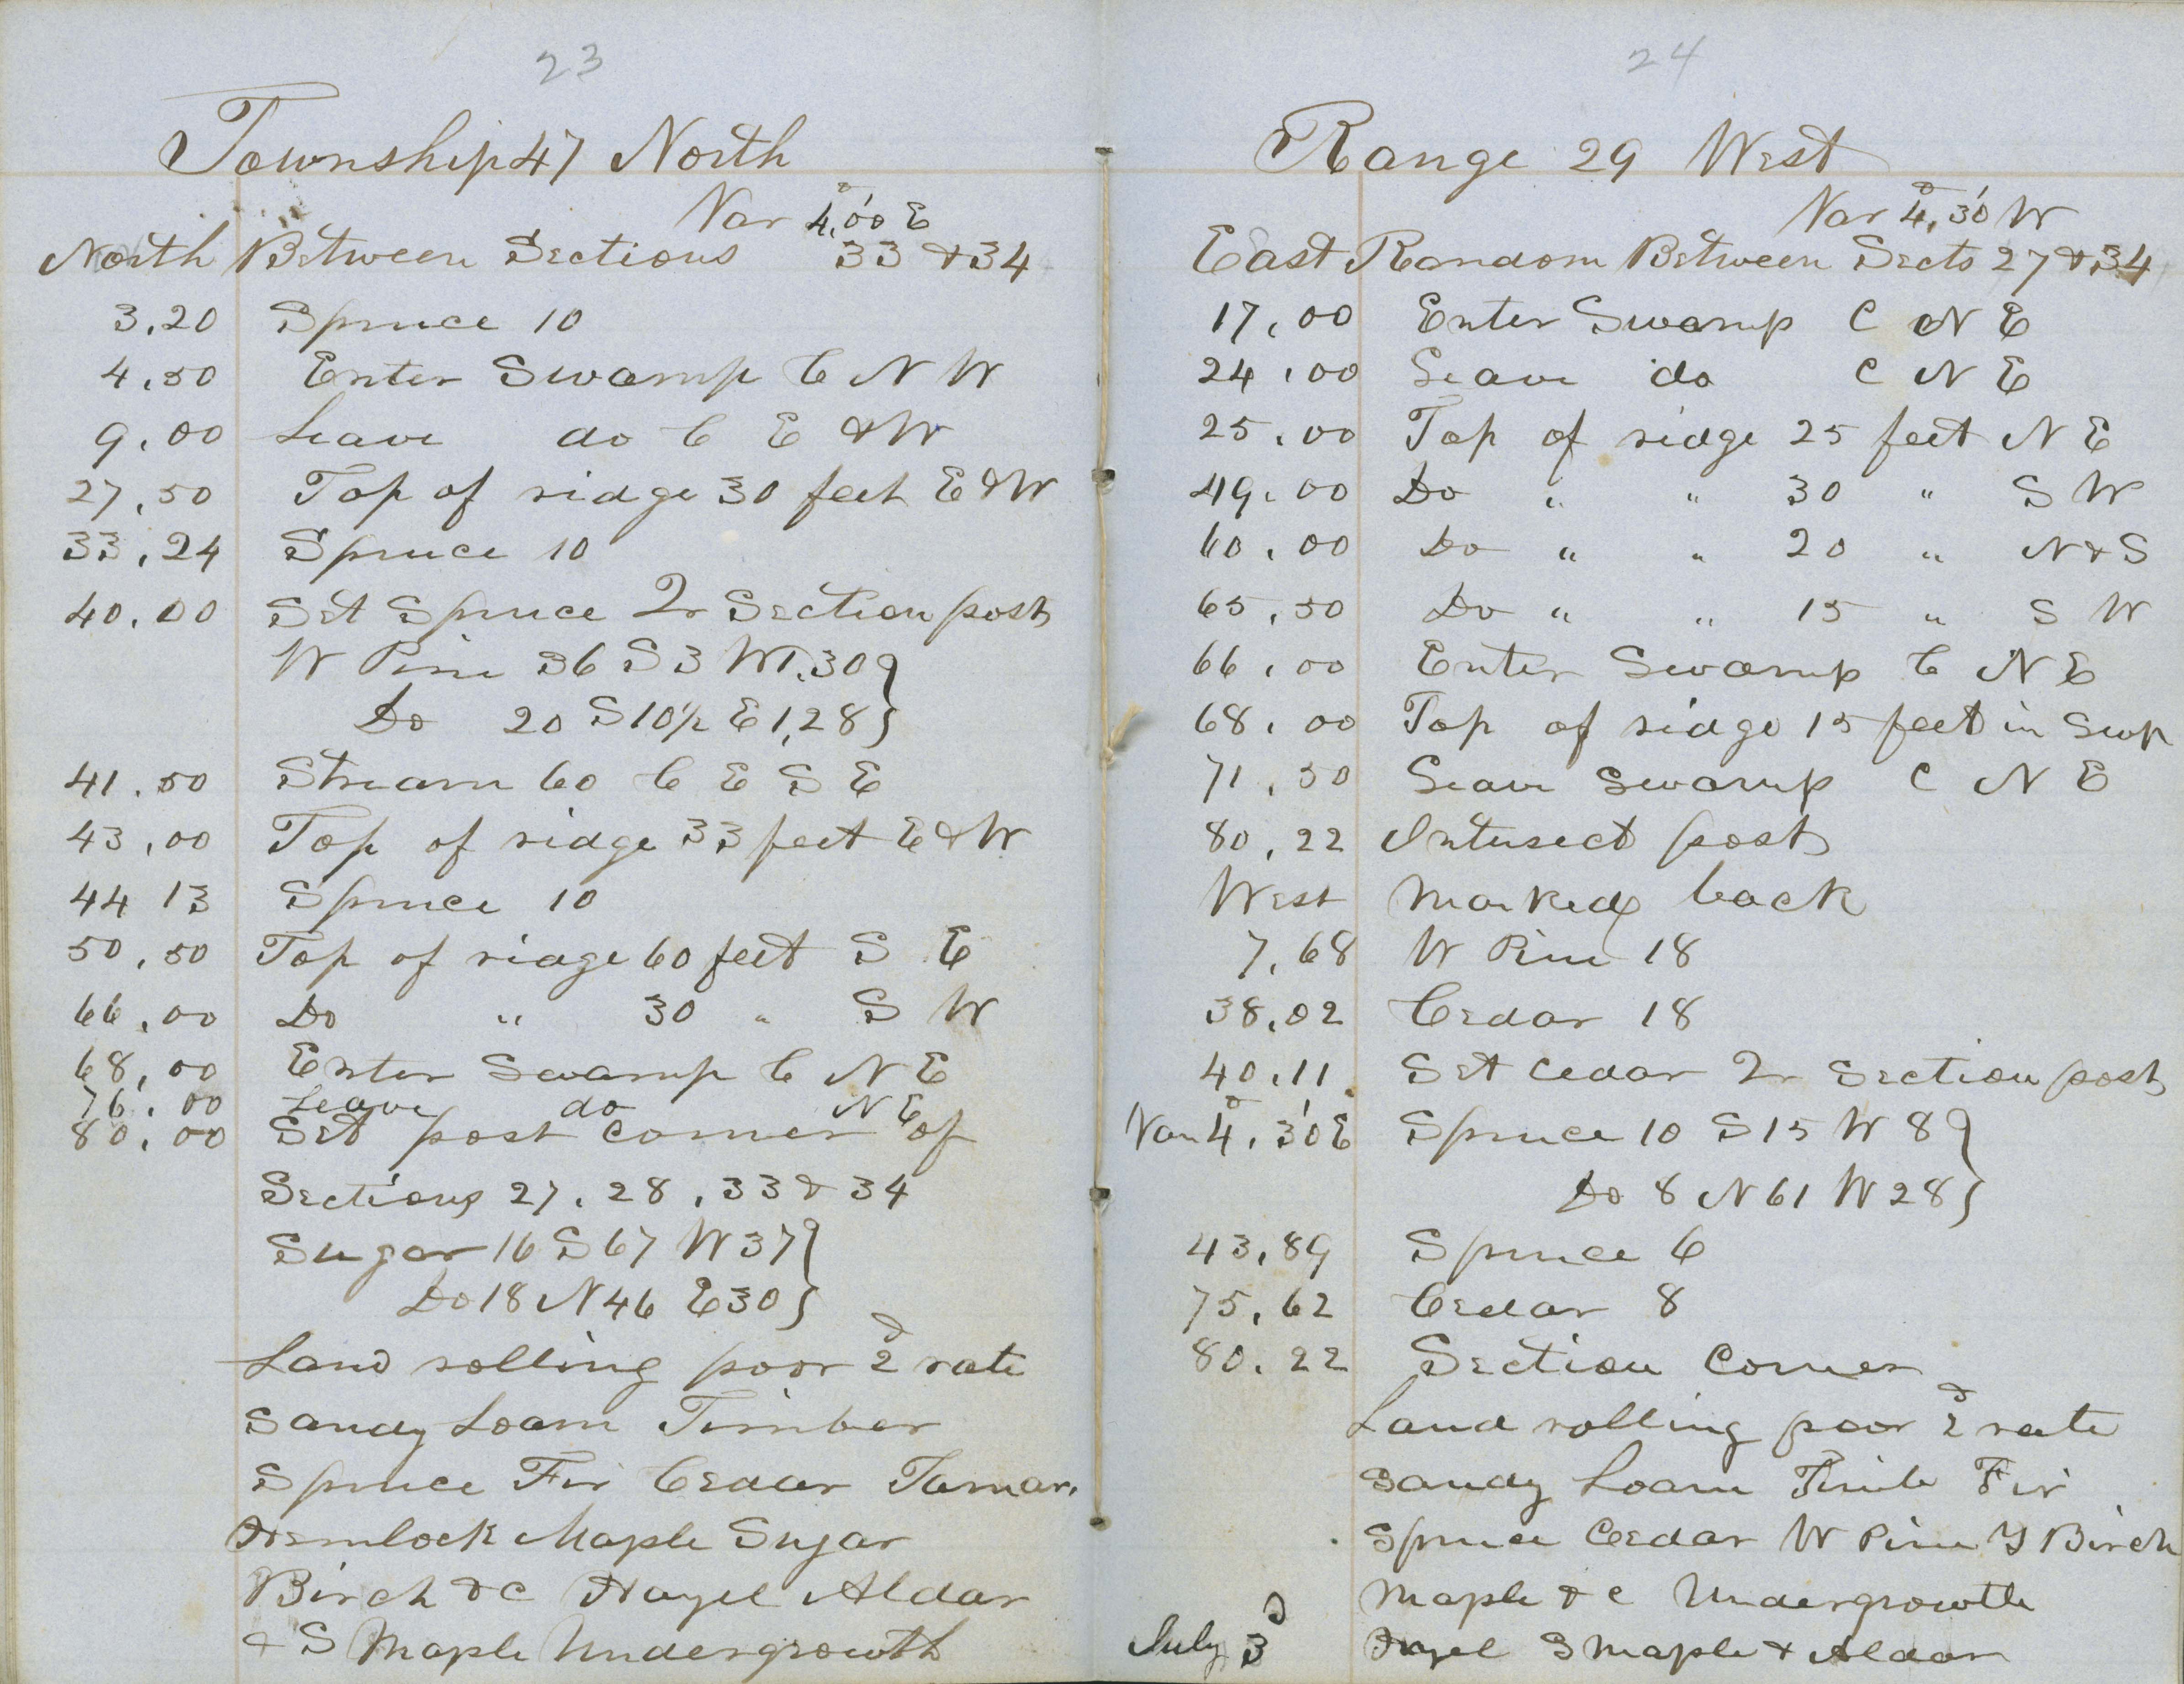 23
Township 47 North
Var 4°,00' E
North Between Sections 33 & 34
3,20 Spruce 10
4,50 Enter Swamp C N W
9,00 Leave do C E & W
27,50 Top of ridge 30 feet E & W
33,24 Spruce 10
40,00 Set Spruce 2r Section post
W Pine 36 S 3 W 1.30 }
Do 20 S 10½ E 1,28 }
41.50 Stream 60 C E S E
43,00 Top of ridge 33 feet E & W
44 13 Spruce 10
50,50 Top of ridge 60 feet S E
66,00 Do " 30 " S W
68,00 Enter Swamp C N E
76,00 Leave do N E
80,00 Set post corner of
Sections 27, 28, 33 & 34
Sugar 16 S 67 W 37 }
Do 18 N 46 E 30 }
Land rolling poor 2d rate
Sandy Loam Timber
Spruce Fir Cedar Tamar.
Hemlock Maple Sugar
Birch & c Hazel Aldar
& S Maple Undergrowth
24
Range 29 West
Var 4°,30' W
East Random Between Sects 27 & 34
17,00 Enter Swamp C N E
24,00 Leave do C N E
25,00 Top of ridge 25 feet N E
49,00 Do " " 30 " S W
60,00 Do " " 20 " N & S
65,50 Do " " 15 " S W
66,00 Enter Swamp C N E
68,00 Top of ridge 15 feet in Swp
71,50 Leave Swamp C N E
80,22 Intersect post
West Marked back
7,68 W Pine 18
38,02 Cedar 18
40,11 Set Cedar 2r Section post
Var 4°,30' E Spruce 10 S 15 W 8 }
Do 8 N 61 W 28 }
43,89 Spruce 6
75,62 Cedar 8
80,22 Section Corner
Land rolling poor 2d rate
Sandy Loam Timb Fir
Spruce Cedar W Pine Y Birch
Maple & c Undergrowth
July 3d Hazel S Maple & Aldar